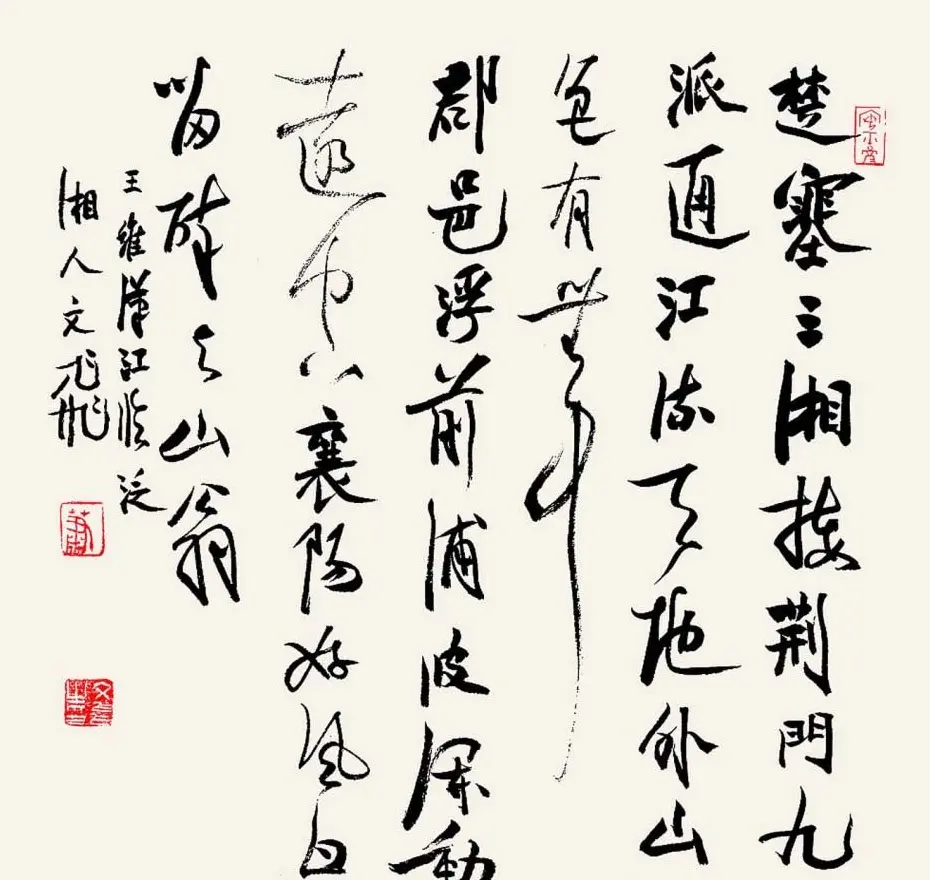 楚塞三湘接荆門九
派通江流天地外山
色有無中
郡邑浮前浦波瀾動
遠空襄陽好風日
留醉与山翁
王維漢江臨泛
湘人文